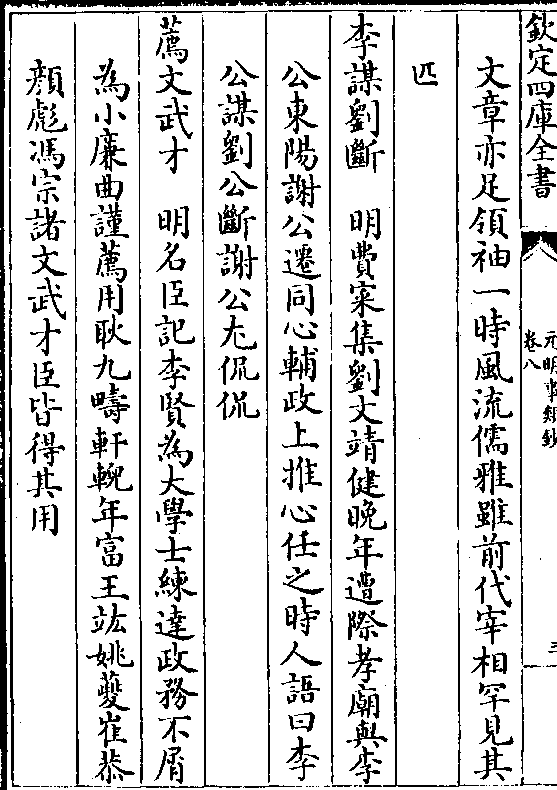 欽定四庫全書
元明事類鈔
卷八
三
文章亦足領袖一時風流儒雅雖前代宰相罕見其
匹
李謀劉斷　明費寀集劉文靖健晚年遭際孝廟與李
公東陽謝公遷同心輔政上推心任之時人語曰李
公謀劉公斷謝公尤侃侃
薦文武才　明名臣記李賢為大學士練達政務不屑
為小廉曲謹薦用耿九疇軒輗年富王竑姚夔崔恭
顔彪馮宗諸文武才臣皆得其用